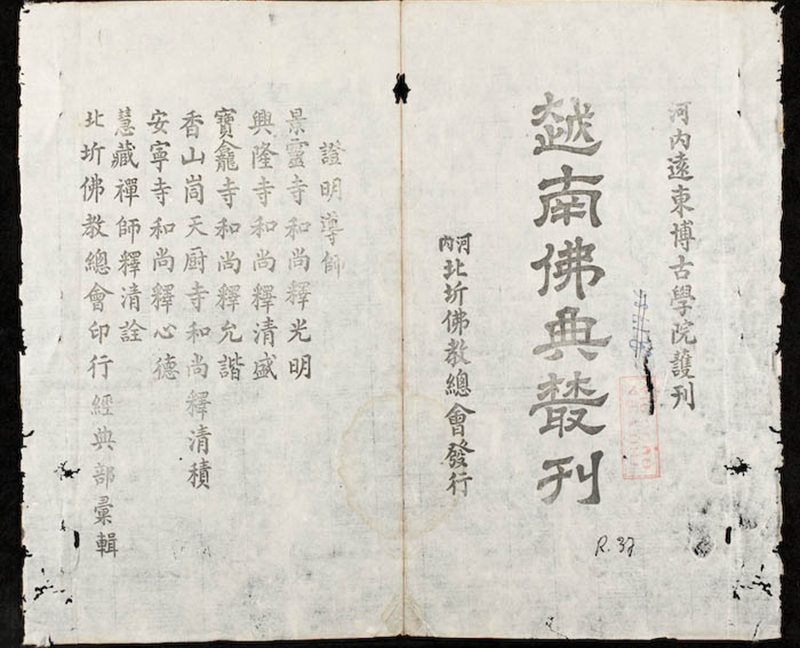 河内遠東博古學院護刊
越南佛典叢刊
河内北圻佛教總會發行
R.32
證明導師
景靈寺和尚釋光明
興隆寺和尚釋清盛
寶龕寺和尚釋允諧
香山崗天厨寺和尚釋清積
安寧寺和尚釋心德
慧藏禪師釋清詮
北圻佛教總會印行經典部彙輯